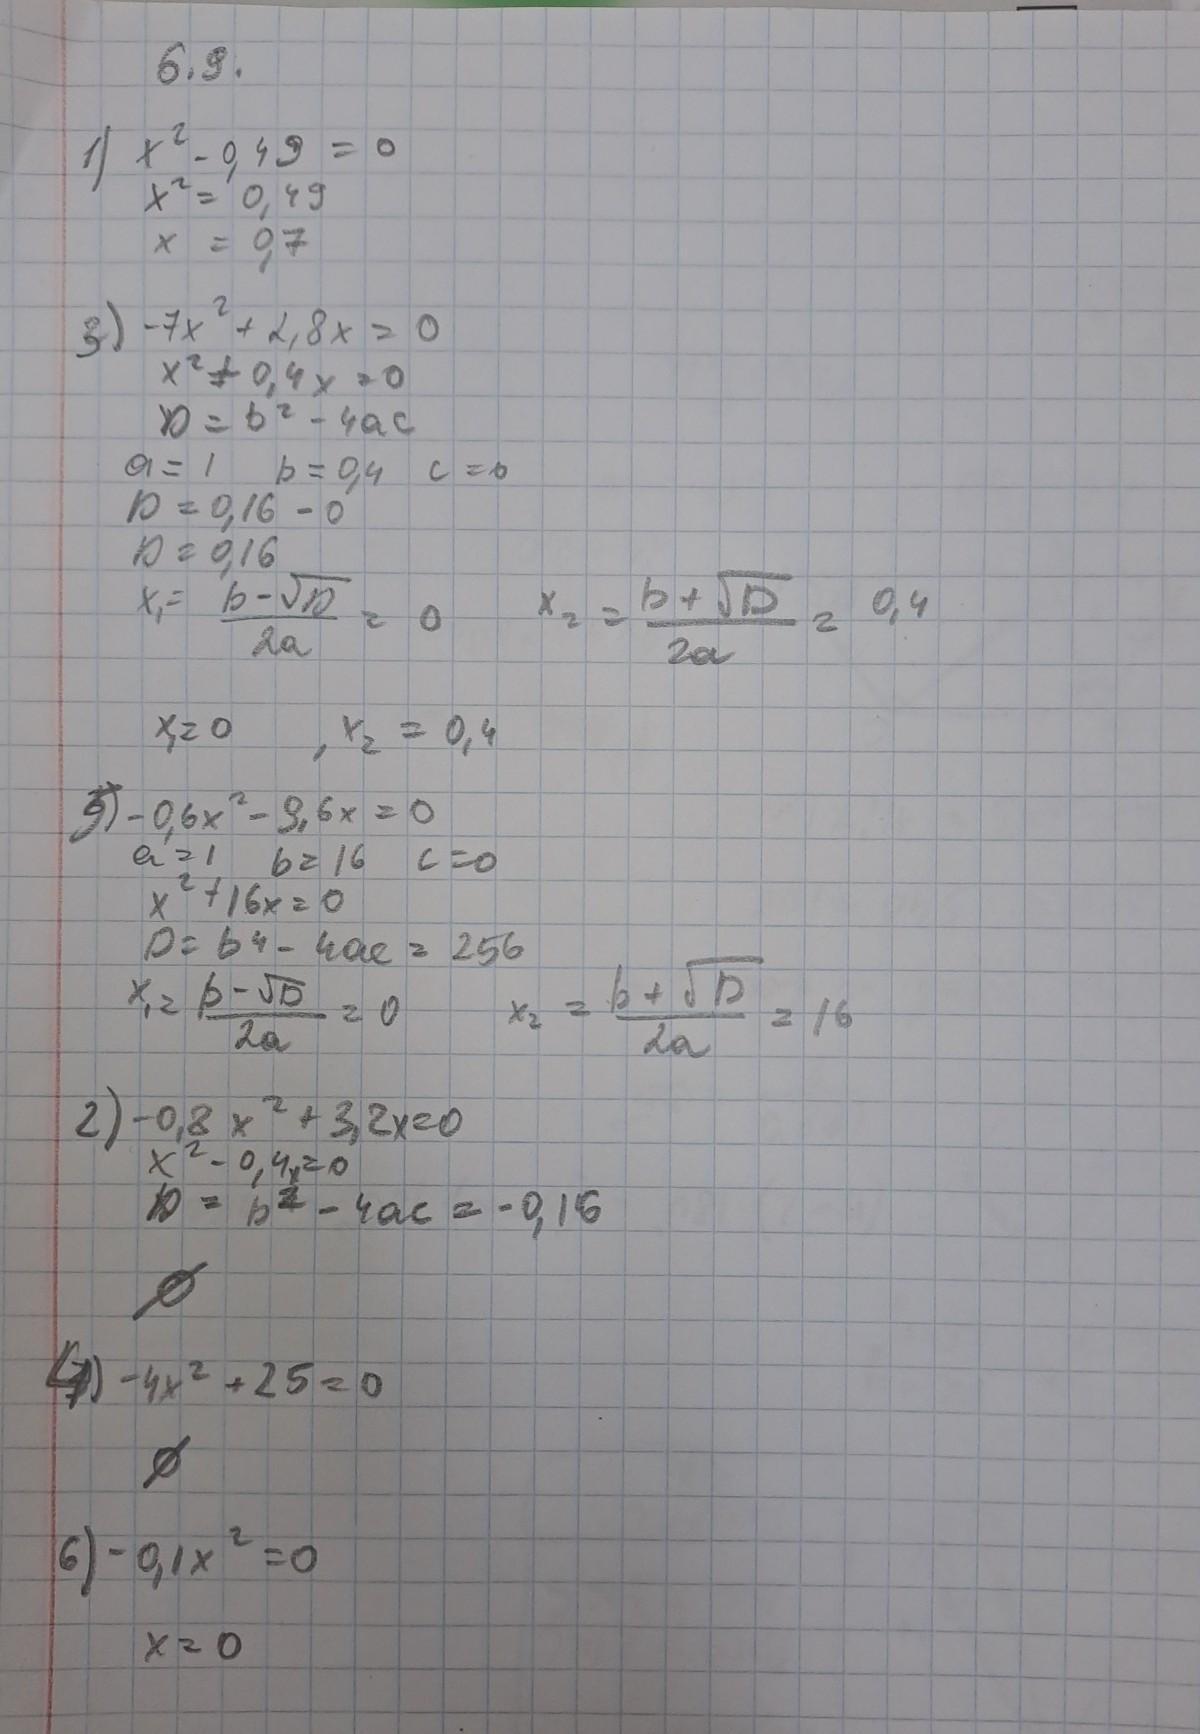 6.9.
1) x² - 0,49 = 0
x² = 0,49
x = 0,7
3) -7x² + 2,8x = 0
x² + 0,4x = 0
D = b² - 4ac
a = 1 b = 0,4 c = 0
D = 0,16 - 0
D = 0,16
x₁ = (b - √D)/2a = 0 x₂ = (b + √D)/2a = 0,4
x₁ = 0 , x₂ = 0,4
5) -0,6x² - 9,6x = 0
a = 1 b = 16 c = 0
x² + 16x = 0
D = b4 - 4ac = 256
x₁ = (b - √D)/2a = 0 x₂ = (b + √D)/2a = 16
2) -0,8x² + 3,2x = 0
x² - 0,4x = 0
D = b² - 4ac = -0,16
∅
4) -4x² + 25 = 0
∅
6) -0,1x² = 0
x = 0